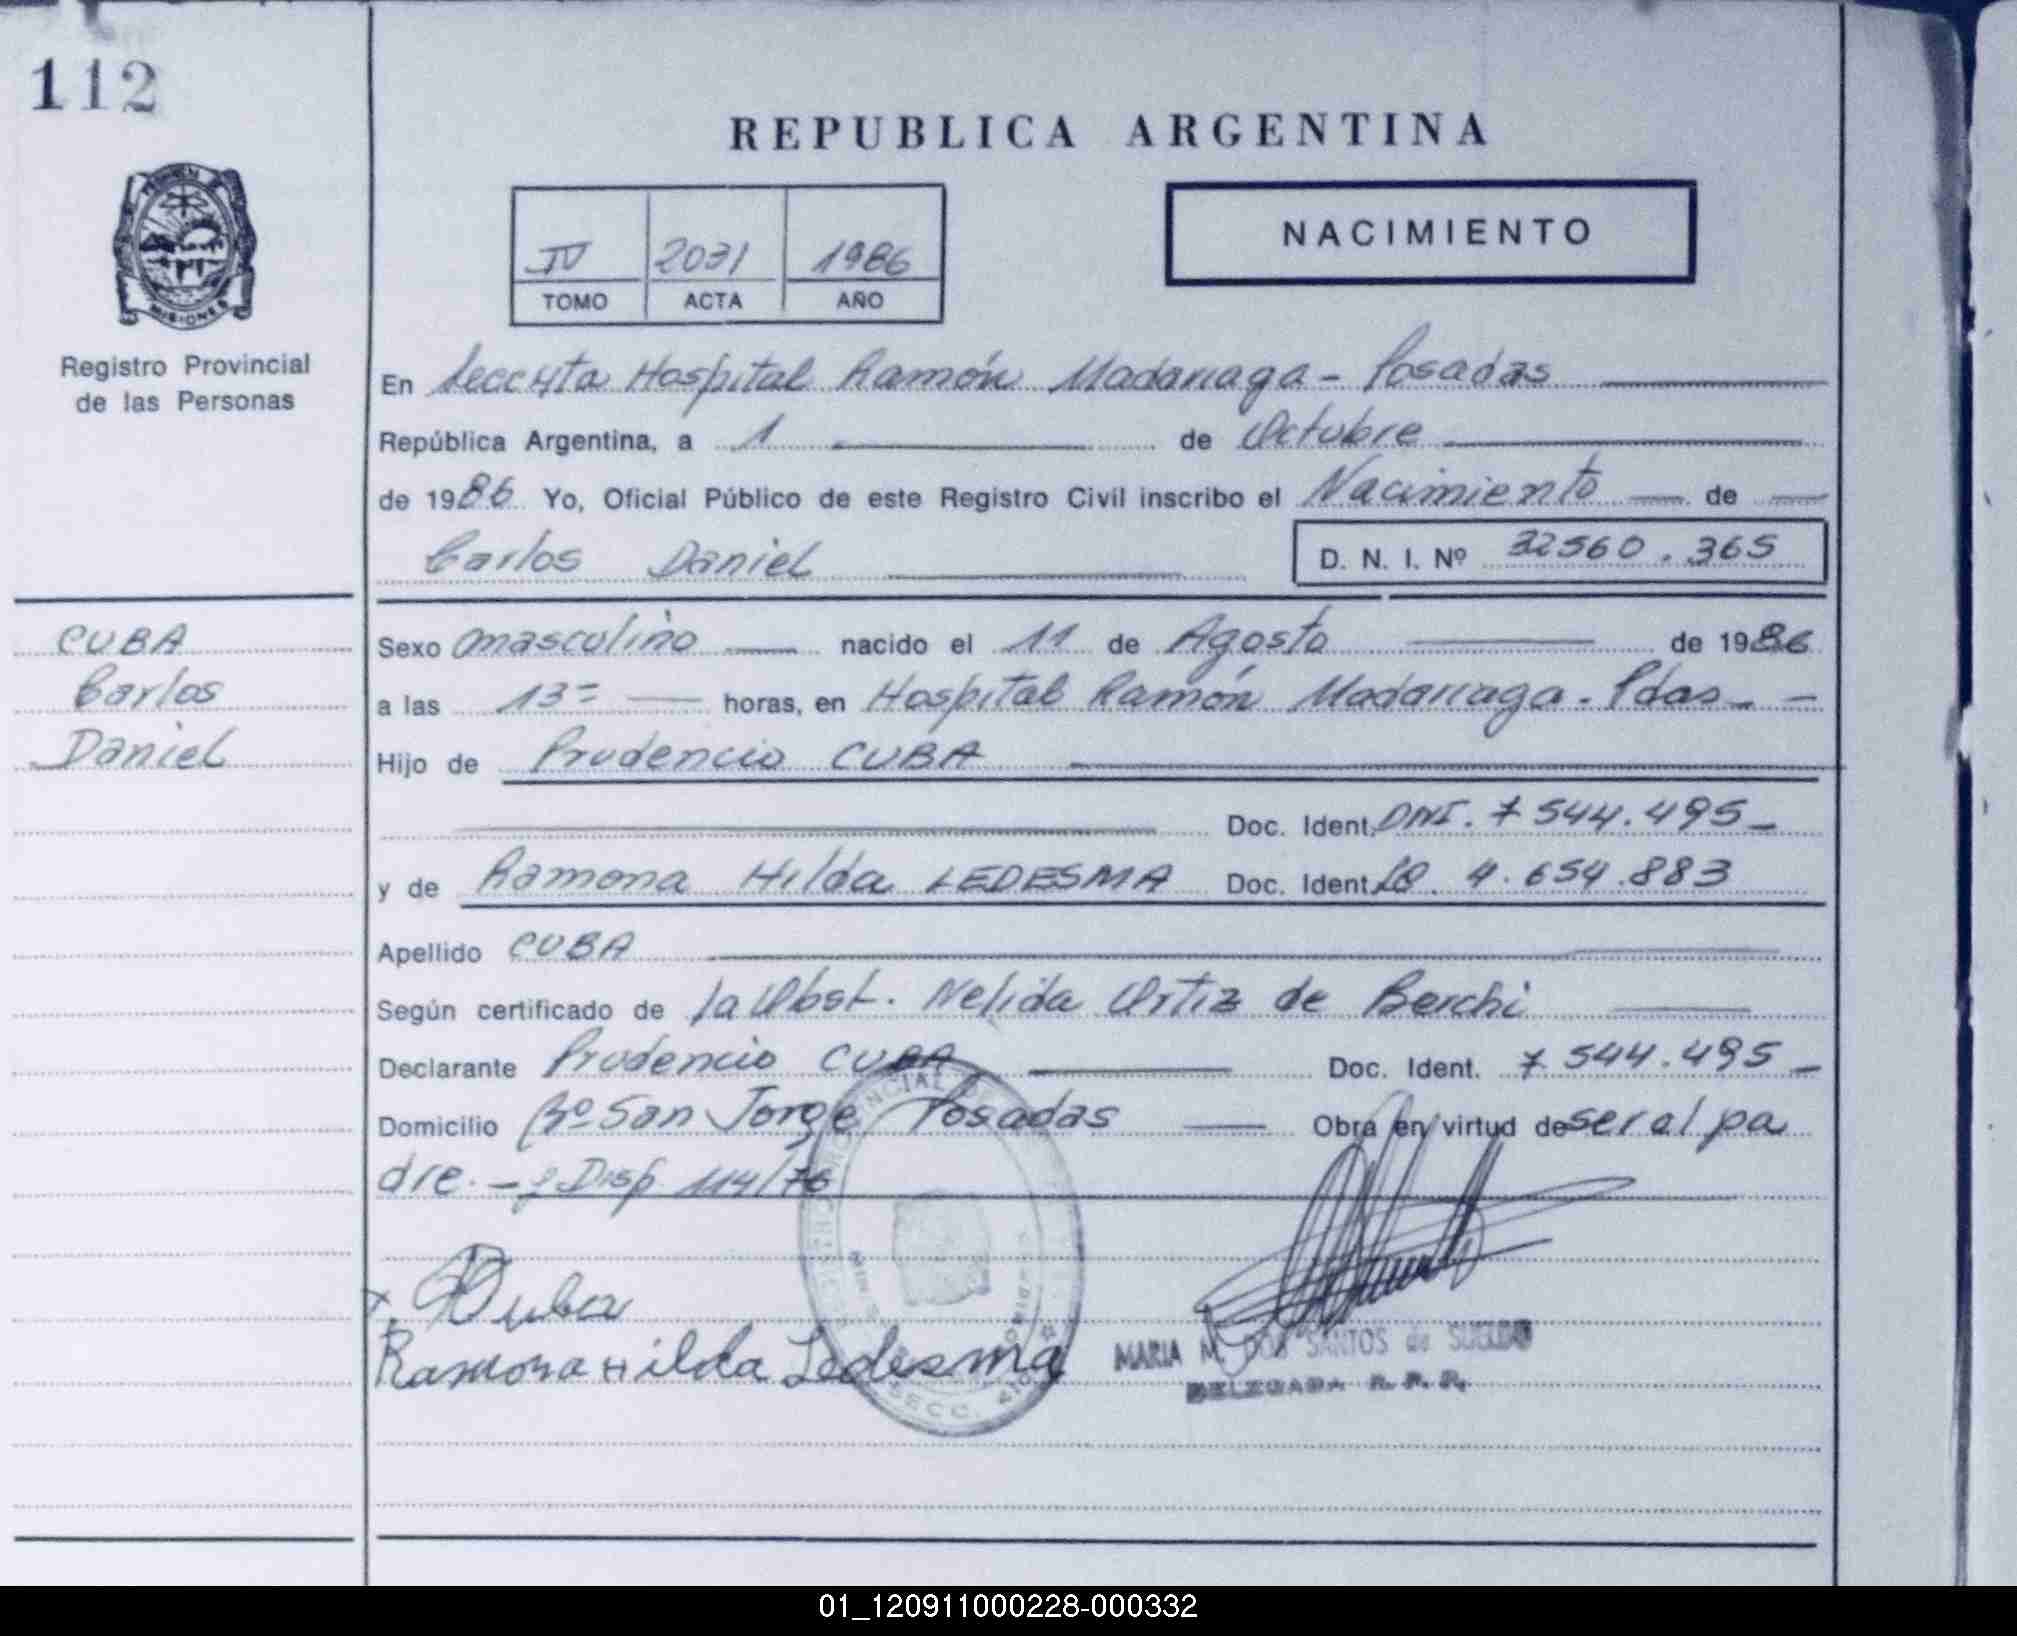 112
REPUBLICA ARGENTINA
NACIMIENTO
IV 2031 1986
TOMO ACTA AÑO
MISIONES
Registro Provincial
de las Personas
En Secc 4ta Hospital Ramón Madariaga - Posadas
República Argentina, a 1 de Octubre
de 1986 Yo, Oficial Público de este Registro Civil inscribo el Nacimiento de
Carlos Daniel D. N. I. Nº 32560.365
CUBA
Carlos
Daniel
Sexo masculino nacido el 11 de Agosto de 1986
a las 13= horas, en Hospital Ramón Madariaga - Pdas -
Hijo de Prudencio CUBA
Doc. Ident. DNI. 7544.495-
y de Ramona Hilda LEDESMA Doc. Ident. LC. 4.654.883
Apellido CUBA
Según certificado de la Obst. Nelida Ortiz de Berchi
Declarante Prudencio CUBA Doc. Ident. 7544.495-
Domicilio Bº San Jorge Posadas Obra en virtud de ser al pa
dre. - Disp. 114/76
Cuba
Ramona Hilda Ledesma
SECC. 4
MARIA M. DOS SANTOS de SUELDO
DELEGADA R. P. P.
01_120911000228-000332